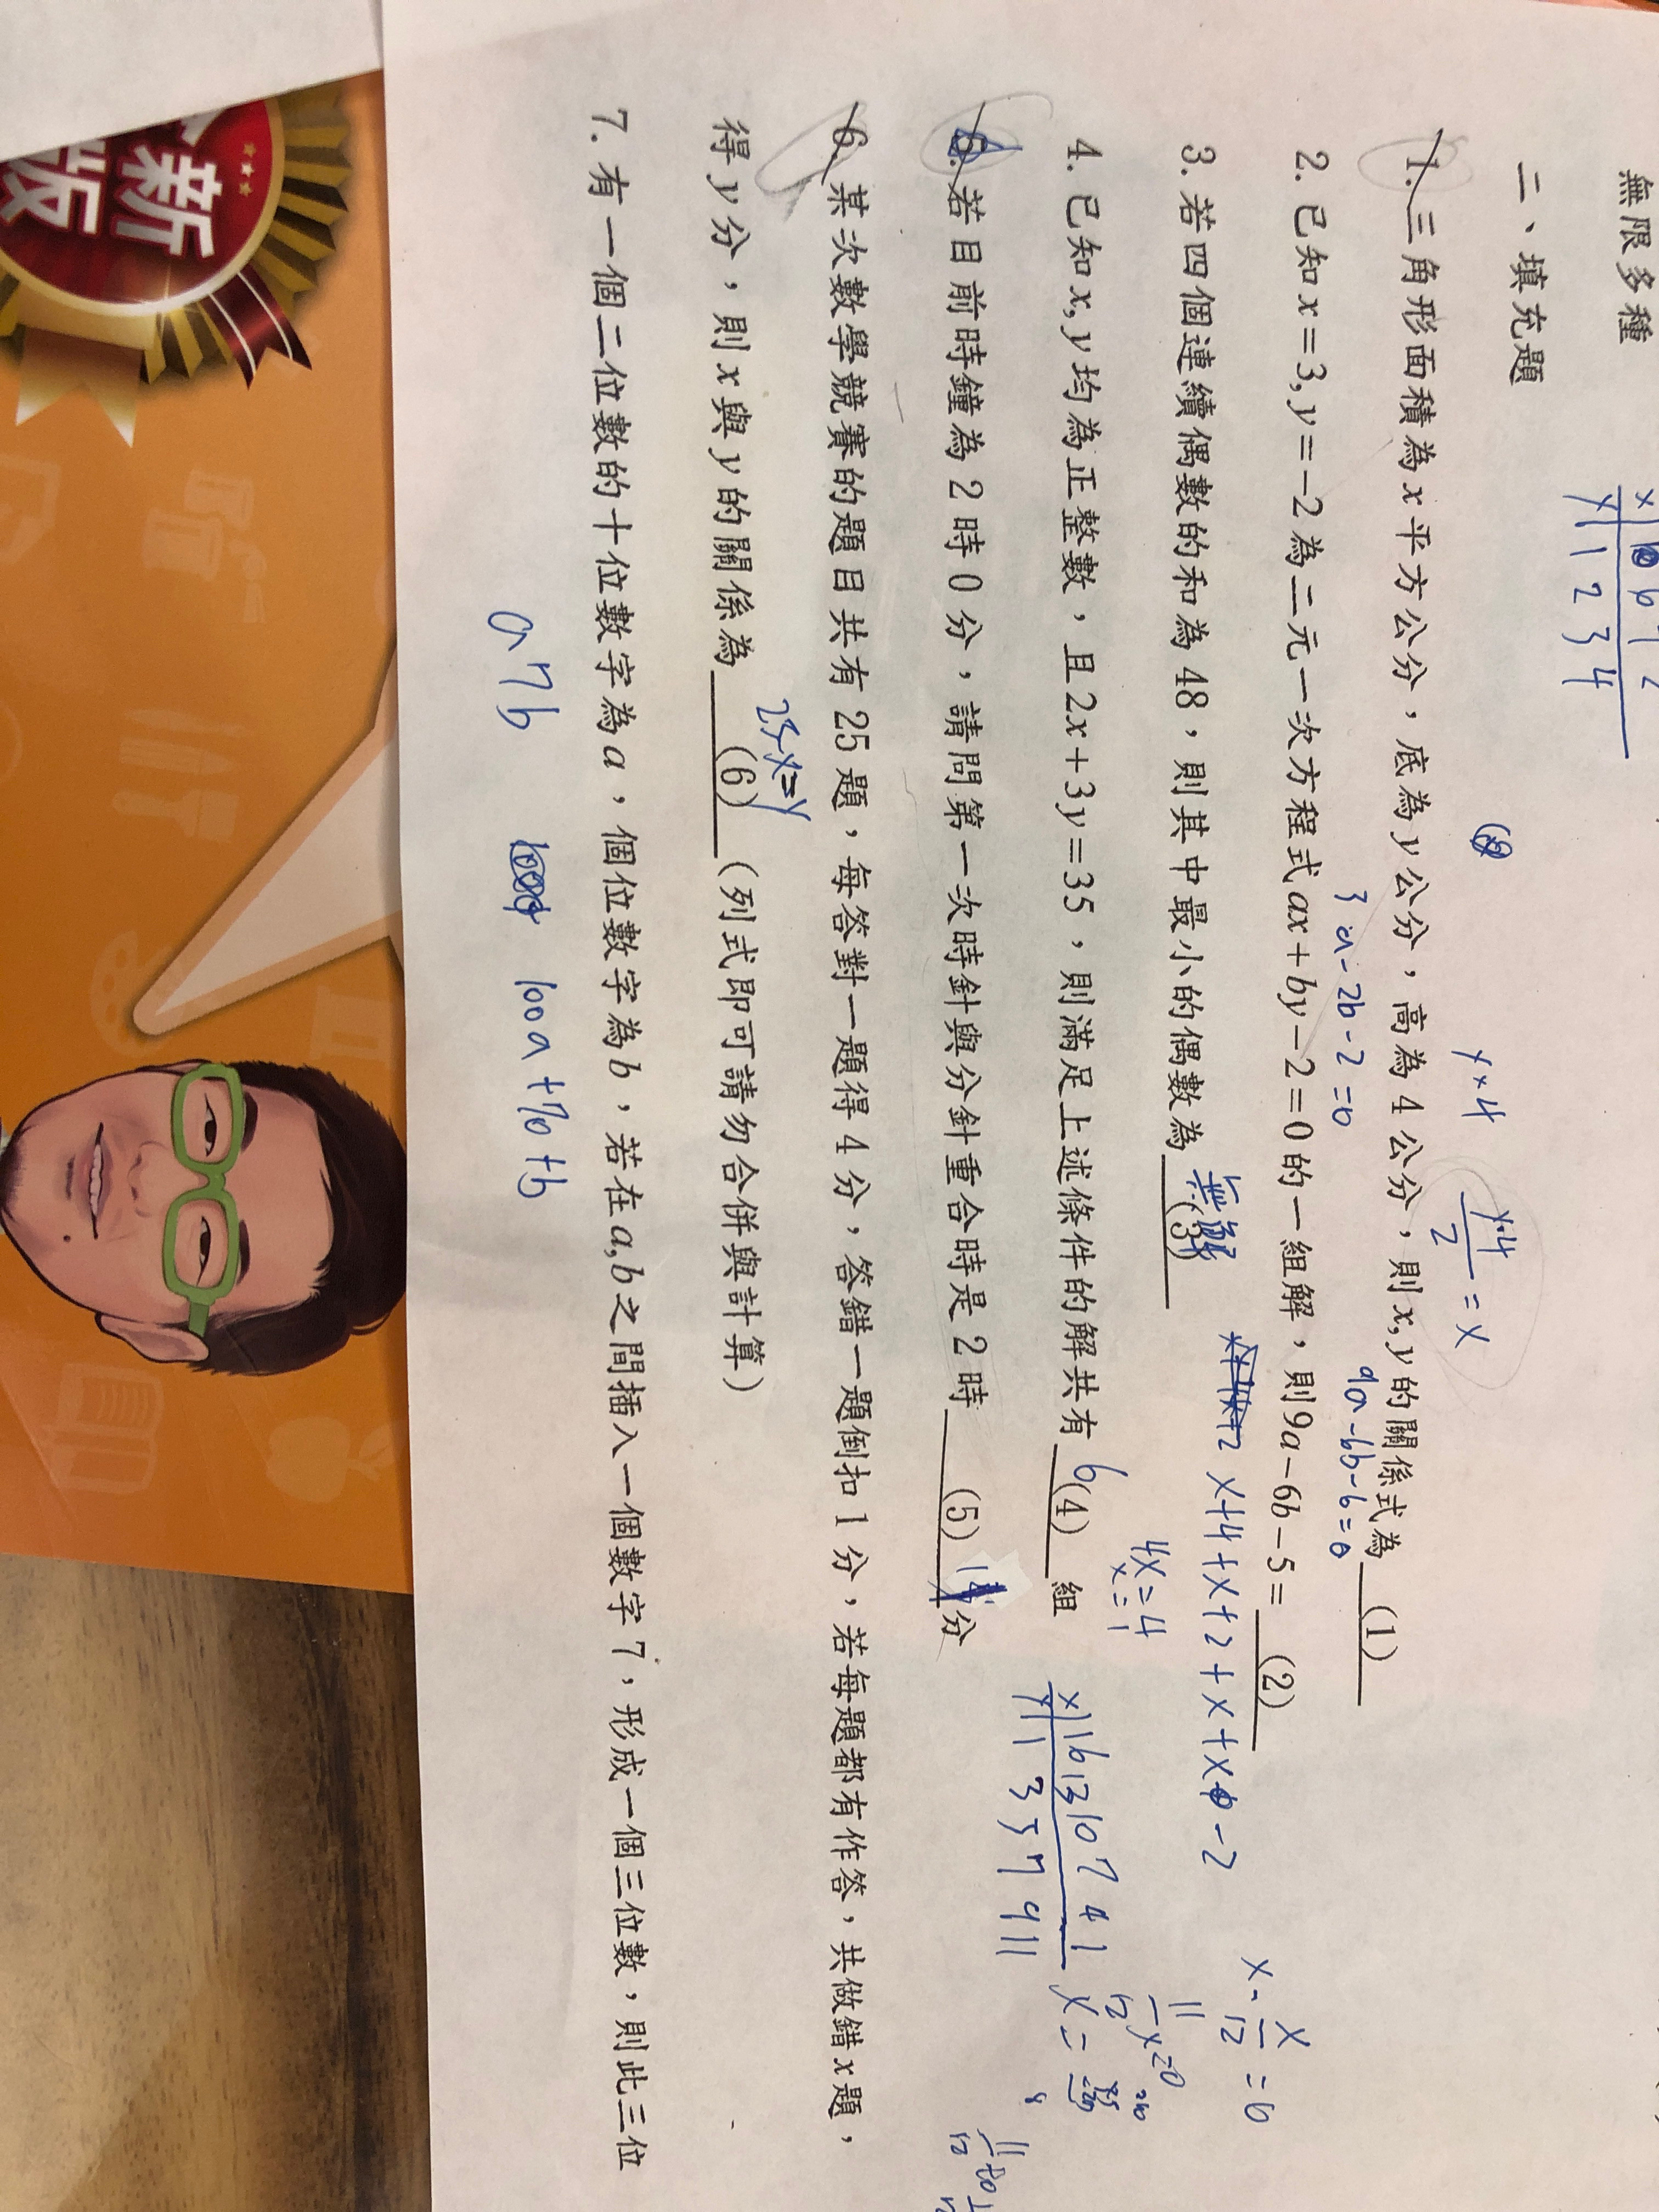 無限多種
x 6 1 2
y 1 2 3 4
二、填充題
y×4
y×4/2 = x
1.三角形面積為x平方公分，底為y公分，高為4公分，則x,y的關係式為 (1)
3a-2b-2=0
9a-6b-6=0
2.已知x=3,y=-2為二元一次方程式ax+by-2=0的一組解，則9a-6b-5= (2)
3.若四個連續偶數的和為48，則其中最小的偶數為 無解 (3)
x+4+x+2+x+x-2
x-x/12=0
4x=4
x=1
11/12 x=0
4.已知x,y均為正整數，且2x+3y=35，則滿足上述條件的解共有 6 (4) 組
x 16 13 10 7 4 1
y 1 3 7 9 11
x=
5.若目前時鐘為2時0分，請問第一次時針與分針重合時是2時 (5) 分
6.某次數學競賽的題目共有25題，每答對一題得4分，答錯一題倒扣1分，若每題都有作答，共做錯x題，
25-x=y
得y分，則x與y的關係為 (6) (列式即可請勿合併與計算)
7.有一個二位數的十位數字為a，個位數字為b，若在a,b之間插入一個數字7，形成一個三位數，則此三位
a7b 100a+70+b
新
版